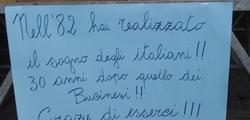 Nell'82 hai realizzato
il sogno degli italiani!!
30 anni dopo quello dei
Bucinesi!!
Grazy di esserci!!!